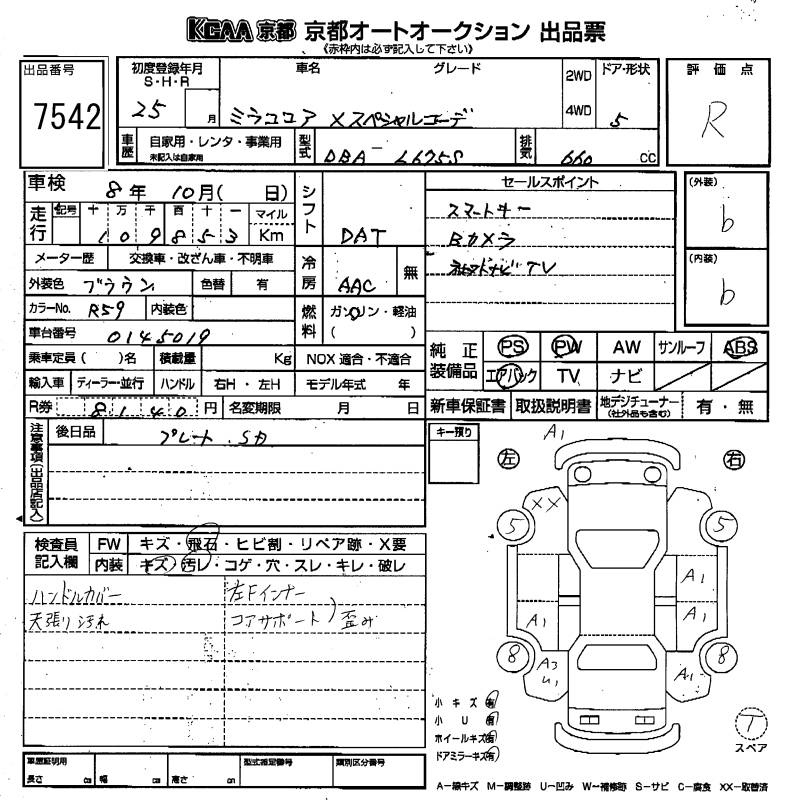 KCAA 京都 京都オートオークション 出品票
《赤枠内は必ず記入して下さい》
出品番号
7542
初度登録年月
S・H・R
25 月
車名 グレード
ミラココア Xスペシャルコーデ
2WD
4WD
ドア・形状
5
評価点
R
車歴
自家用・レンタ・事業用
未記入は自家用
型式
DBA-L675S
排気
660 CC
車検 8年 10月( 日)
走行
記号 十 万 千 百 十 一 マイル
1 0 9 8 5 3 Km
シフト
DAT
セールスポイント
スマートキー
Bカメラ
ナビ TV
(外装)
b
(内装)
b
メーター歴 交換車・改ざん車・不明車
冷房
AAC 無
外装色 ブラウン 色替 有
カラーNo. R59 内装色
燃料
ガソリン・軽油
( )
車台番号 0145019
乗車定員( )名 積載量 Kg NOX 適合・不適合
輸入車 ディーラー・並行 ハンドル 右H・左H モデル年式 年
R券 8140 円 名変期限 月 日
純正装備品
PS PW AW サンルーフ ABS
エアバック TV ナビ
新車保証書 取扱説明書 地デジチューナー 有・無
(社外品も含む)
注意事項(出品店記入)
後日品 プレート、S月
キー預り
A1
左
右
XX
5
5
A1
A1
A1
8
8
A3
U1
A1
検査員記入欄
FW キズ・飛石・ヒビ割・リペア跡・X要
内装 キズ・汚レ・コゲ・穴・スレ・キレ・破レ
ハンドルカバー
天張り汚れ
左Fインナー
コアサポート)歪み
小キズ 有
小U 有
ホイールキズ 有
ドアミラーキズ 有
T
スペア
車庫証明用
長さ cm 幅 cm 高さ cm
型式指定番号
類別区分番号
A−線キズ M−調整跡 U−凹み W−補修跡 S−サビ C−腐食 XX−取替済